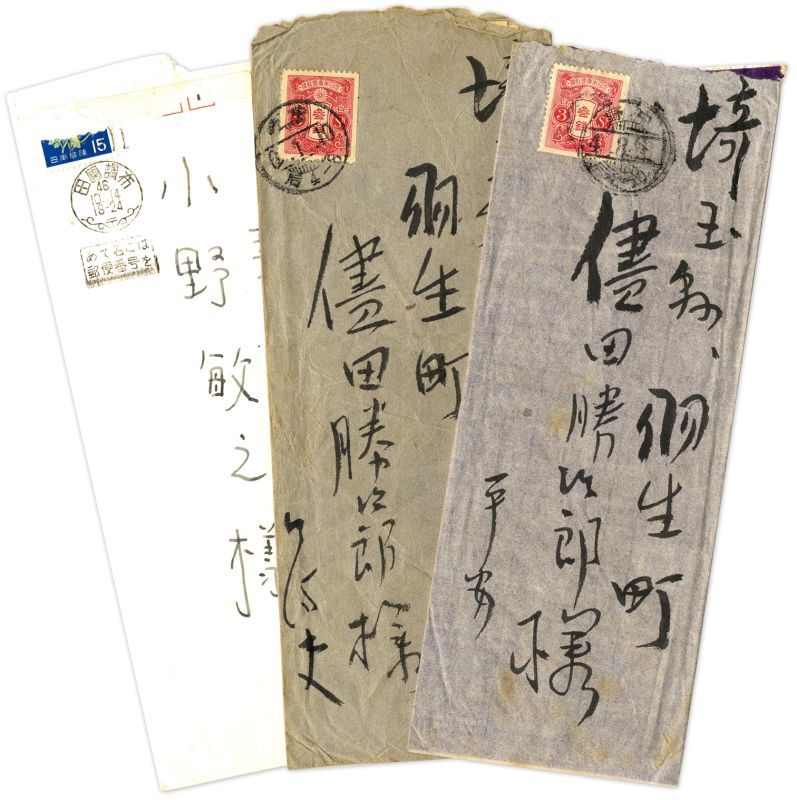 日本郵便 15
田園調布
46
18-24
あて名には
郵便番号を
小野敏之様
3 Sn.
羽生町
儘田勝次郎様
3 Sn.
埼玉縣、羽生町
儘田勝次郎様
平安